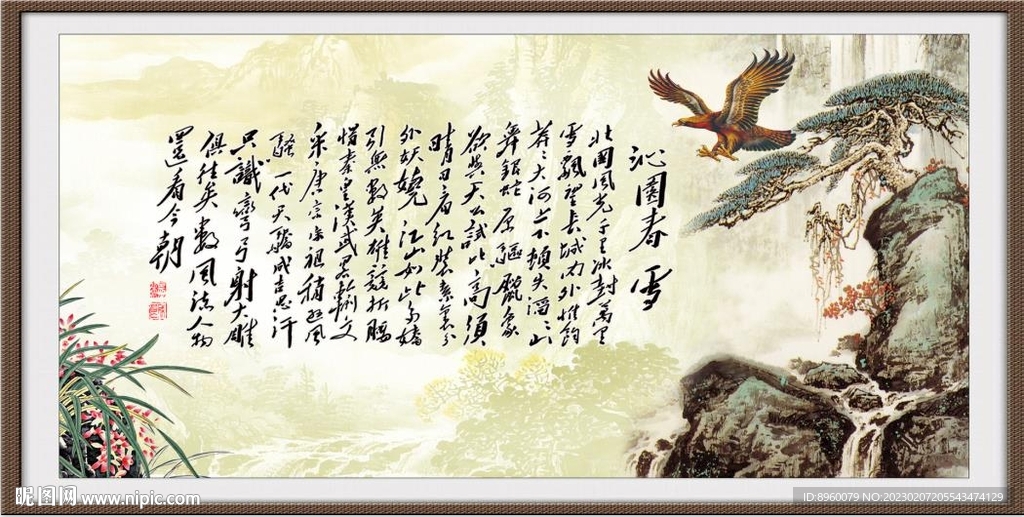 沁園春 雪
北国风光千里冰封萬里
雪飘望长城内外惟餘
莽々大河上下頓失滔々山
舞銀蛇原驅臘象
欲與天公試比高須
晴日看红裝素裹分
外妖嬈江山如此多嬌
引無數英雄競折腰
惜秦皇漢武略輸文
采唐宗宋祖稍遜風
騷一代天驕成吉思汗
只識彎弓射大雕
俱往矣數風流人物
還看今朝
昵图网 www.nipic.com
ID:8960079 NO:20230207205543474129